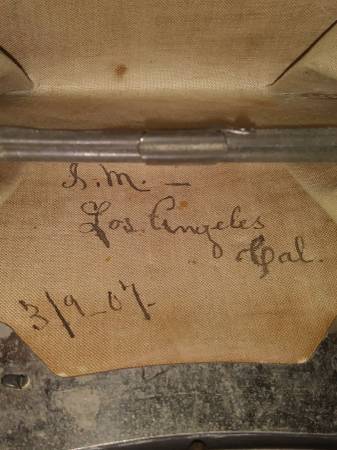 S.M. —
Los. Angeles
Cal.
3/9-07.